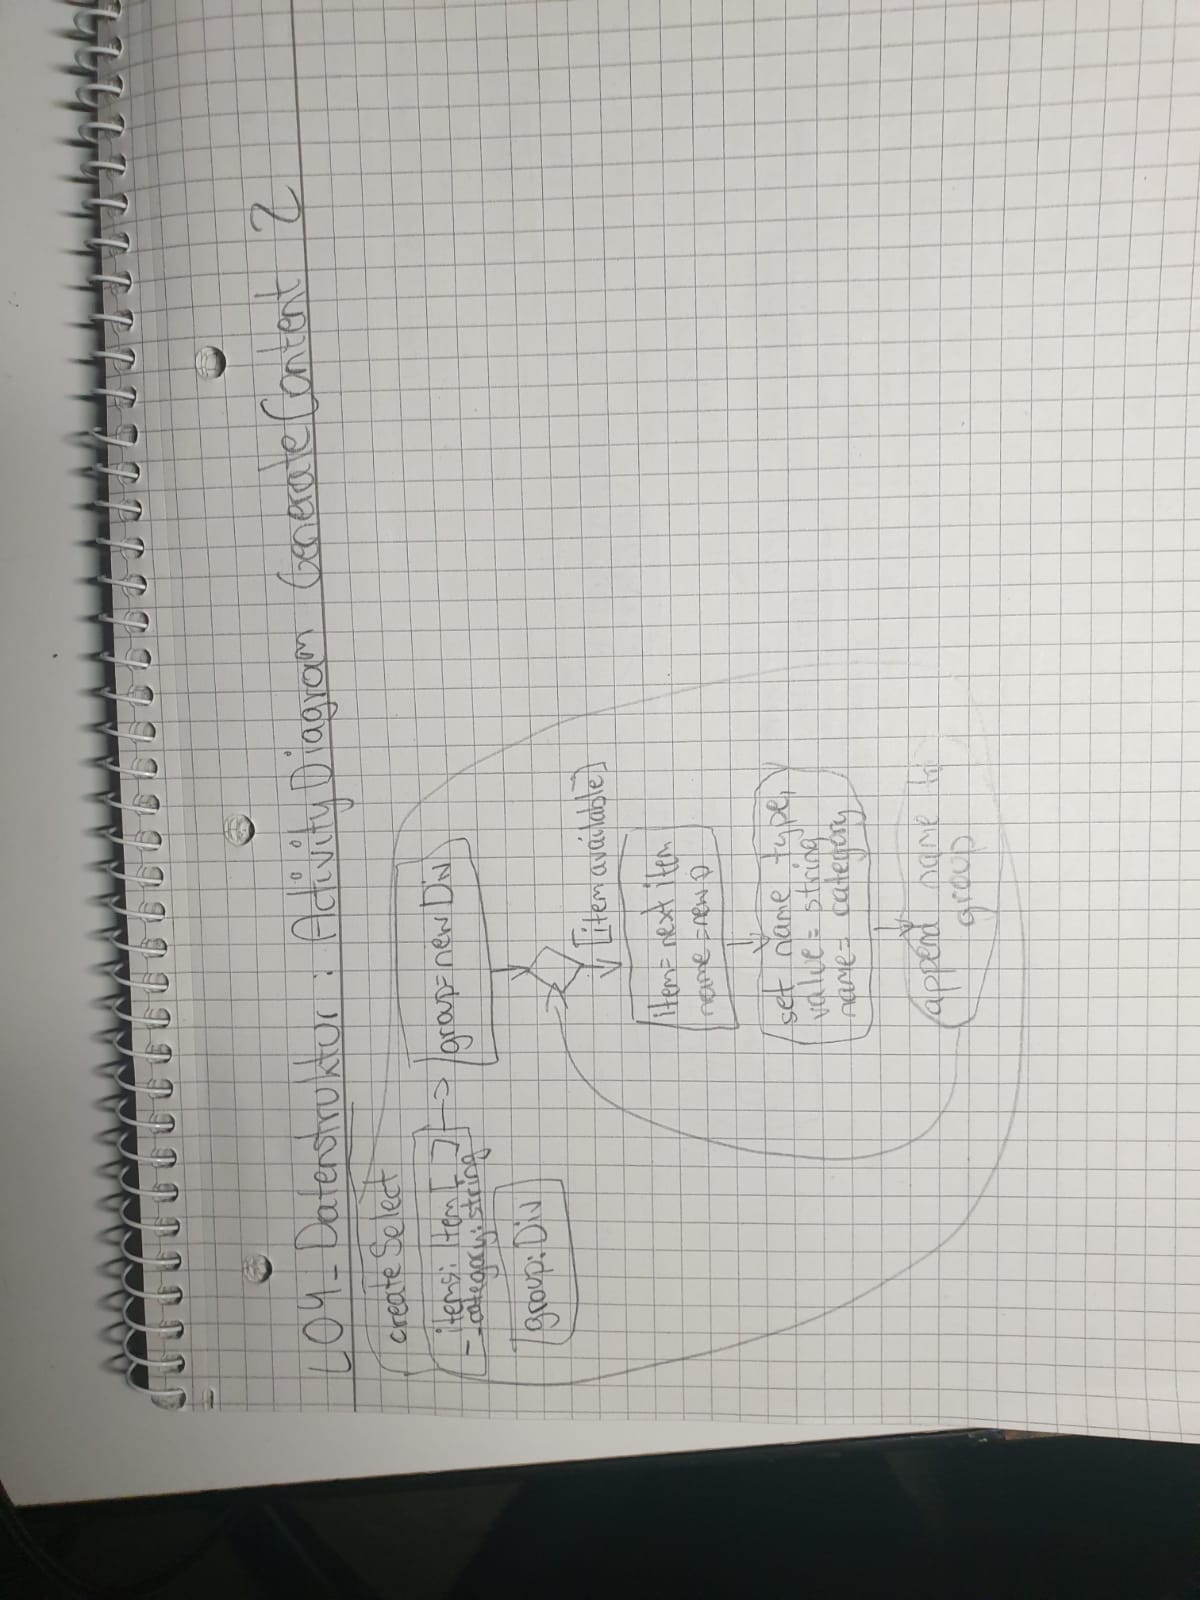 L04-Datenstruktur: ActivityDiagram GenerateContent 2
createSelect
items: Item[]
-category:string
group:Div
group=newDiv
[item available]
item=next item
name=new
set name type,
value=string
name=category
append name to
group